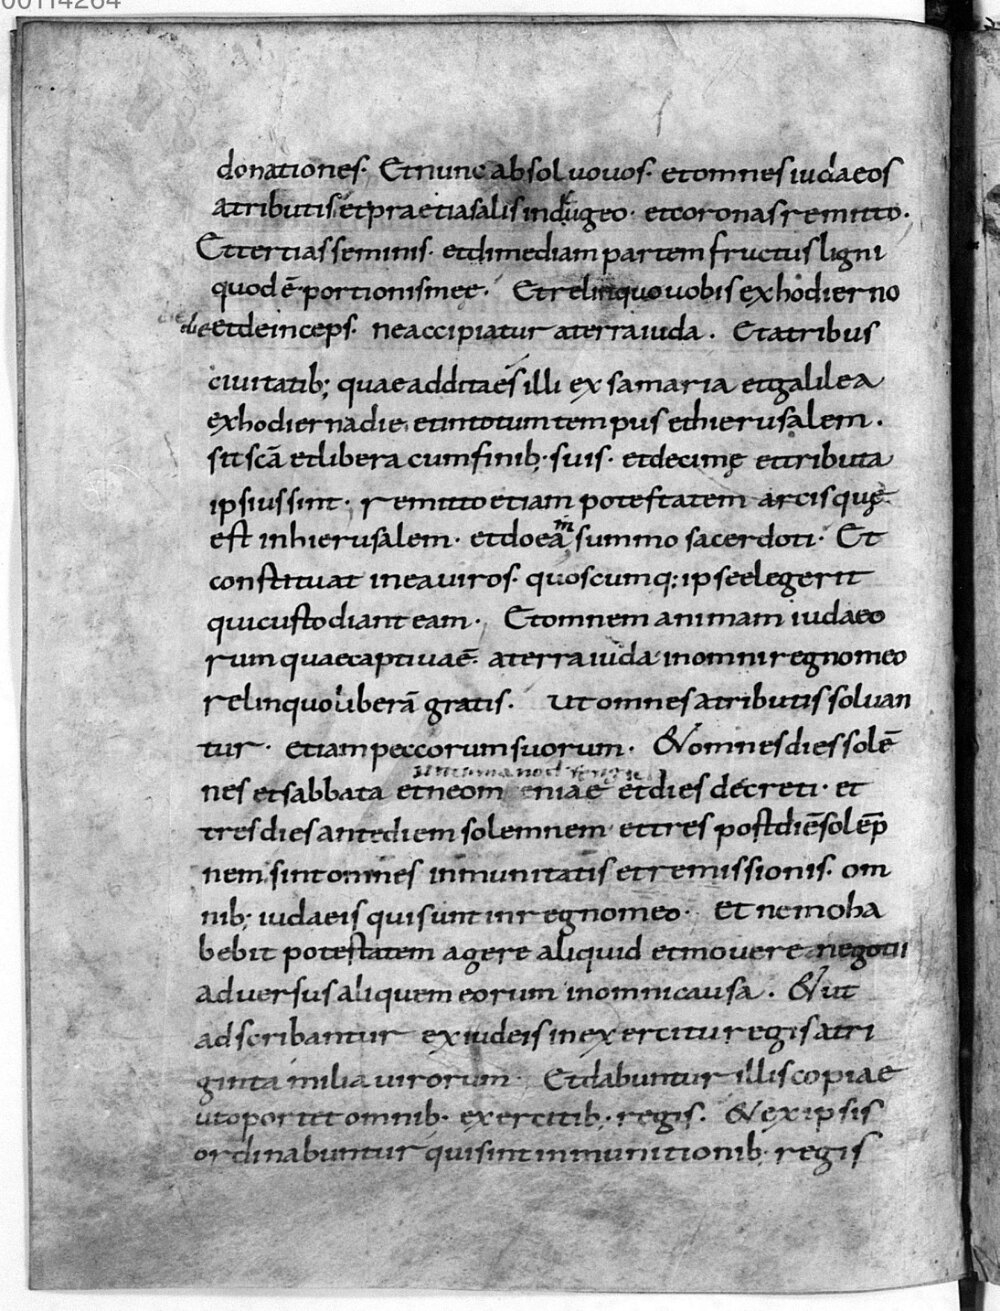 00114264
donationes. Et nunc absoluo uos. et omnes iudaeos
a tributis. et praetia salis indulgeo. et coronas remitto.
Et tertias seminis. et dimediam partem fructus ligni
quod ē portionis meę. Et relinquo uobis ex hodierno
die et deinceps. ne accipiatur a terra iuda. Et a tribus
ciuitatib; quae additae s̄ illi ex samaria et galilea
ex hodierna die. et in totum tempus et hierusalem.
sit sc̄a et libera cum finib; suis. et decimę et tributa
ipsius sint. remitto etiam potestatem arcis quę
est in hierusalem. et do eam summo sacerdoti. Et
constituat in ea uiros. quoscumq; ipse elegerit
qui custodiant eam. Et omnem animam iudaeo
rum quae captiua ē. a terra iuda in omni regno meo
relinquo liberā gratis. Ut omnes a tributis soluan
tur. etiam peccorum suorum. & omnes dies solē
nes et sabbata et neomeniae et dies decreti. et
tres dies ante diem solemnem et tres post diē solēp
nem sint omnes inmunitatis et remissionis. om
nib; iudaeis qui sunt in regno meo. Et nemo ha
bebit potestatem agere aliquid et mouere negotii
aduersus aliquem eorum in omni causa. & ut
adscribantur ex iudeis in exercitu regis a tri
ginta milia uirorum. Et dabuntur illis copiae
ut oportet omnib. exercitib. regis. & ex ipsis
ordinabuntur qui sint in munitionib. regis